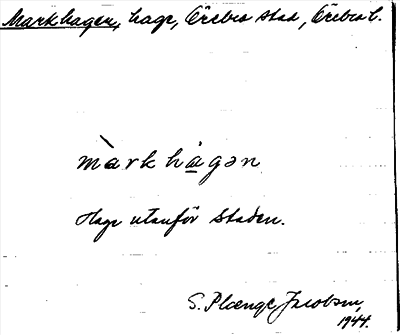 Markhagen, hage, Örebro stad, Örebro l.
màrk hågən
Hage utanför staden.
S. Plænge Jacobson,
1944.